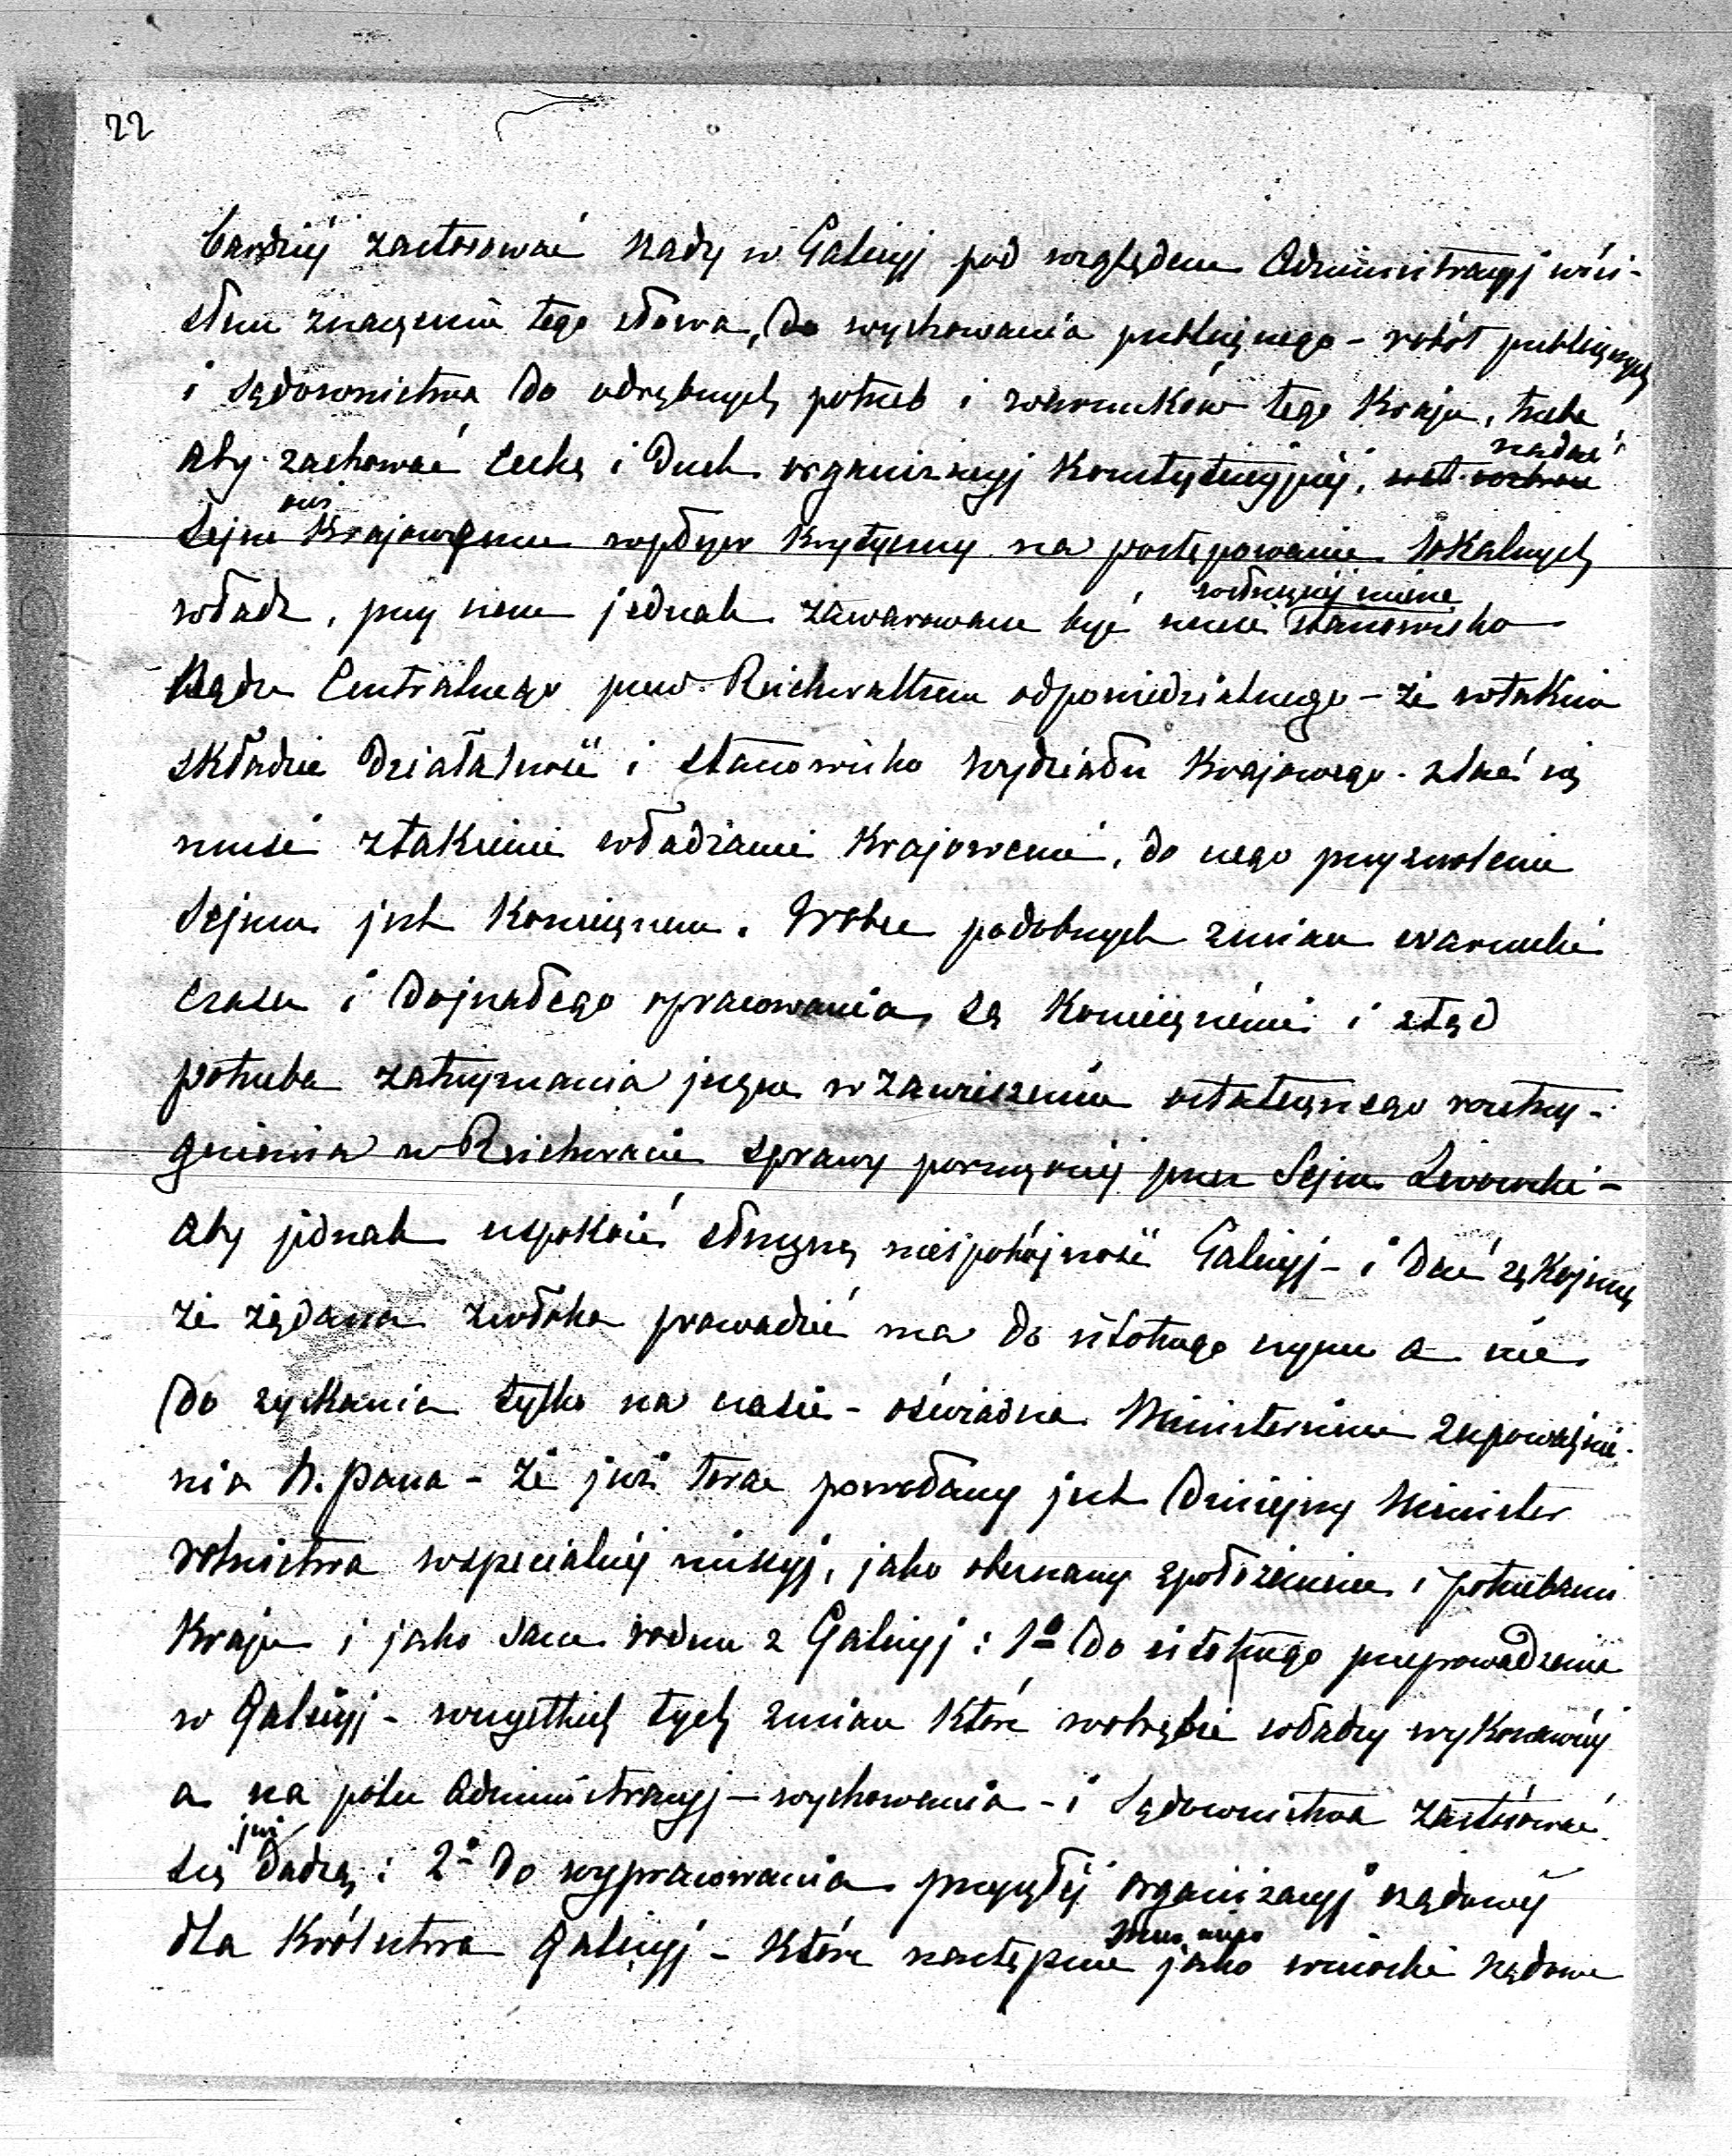 22
bardziej zastosować rządy w Galicyj pod względem Administracyj wści-
słem znaczeniu tego słowa, do wychowania publicznego - robót publicznych
i sądownictwa do odrębnych potrzeb i warunków tego Kraju, trzeba
aby zachować cechę i Duch organizacyj Konstytucyjnéj, nadać
Sejmowi Krajowemu wpływ krytyczny na postępowanie lokalnych
władz, przy nem jednak zawarowane być musi stanowisko
Rządu Centralnego przed Reichsrathem odpowiedzialnego - że wtakim
składzie Działalność i stanowisko wydziału Krajowego stać się
musi ztakiemi władzami Krajowemi, do czego przyzwolenie
Sejmu jest Koniecznem. Wobec podobnych zmian warunki
czasu i dojrzałego opracowania są Koniecznémi i ztąd
potrzeba zatrzymania jeszcze w zawieszeniu ostatecznego roztrzy-
gnienia w Reichsracie sprawy poruszonéj przez Sejm Lwowski -
aby jednak uspokoić słuszną niespokójność Galicyj - i dać rękojmię
że żądana zwłoka prowadzić ma do istotnego czynu a nie
do zyskania tylko na czasie - oświadcza Ministerium z upoważnie-
nia N. Pana - że już teraz powołany jest Dzisiejszy Minister
rolnictwa wspecialnéj missyj, jako obeznany z położeniem i potrzebami
Kraju i jako sam rodem z Galicyj: 1º do istotnego przeprowadzenia
w Galicyj - wszystkich tych zmian które wobrębie władzy wykonawczéj
a na polu Administracyj - wychowania - i Sądownictwa zastósować
się już dadzą: 2º do wypracowania przyszłéj organizacyj rządowéj
dla Królestwa Galicyj - które następnie jako wnioski rządowe